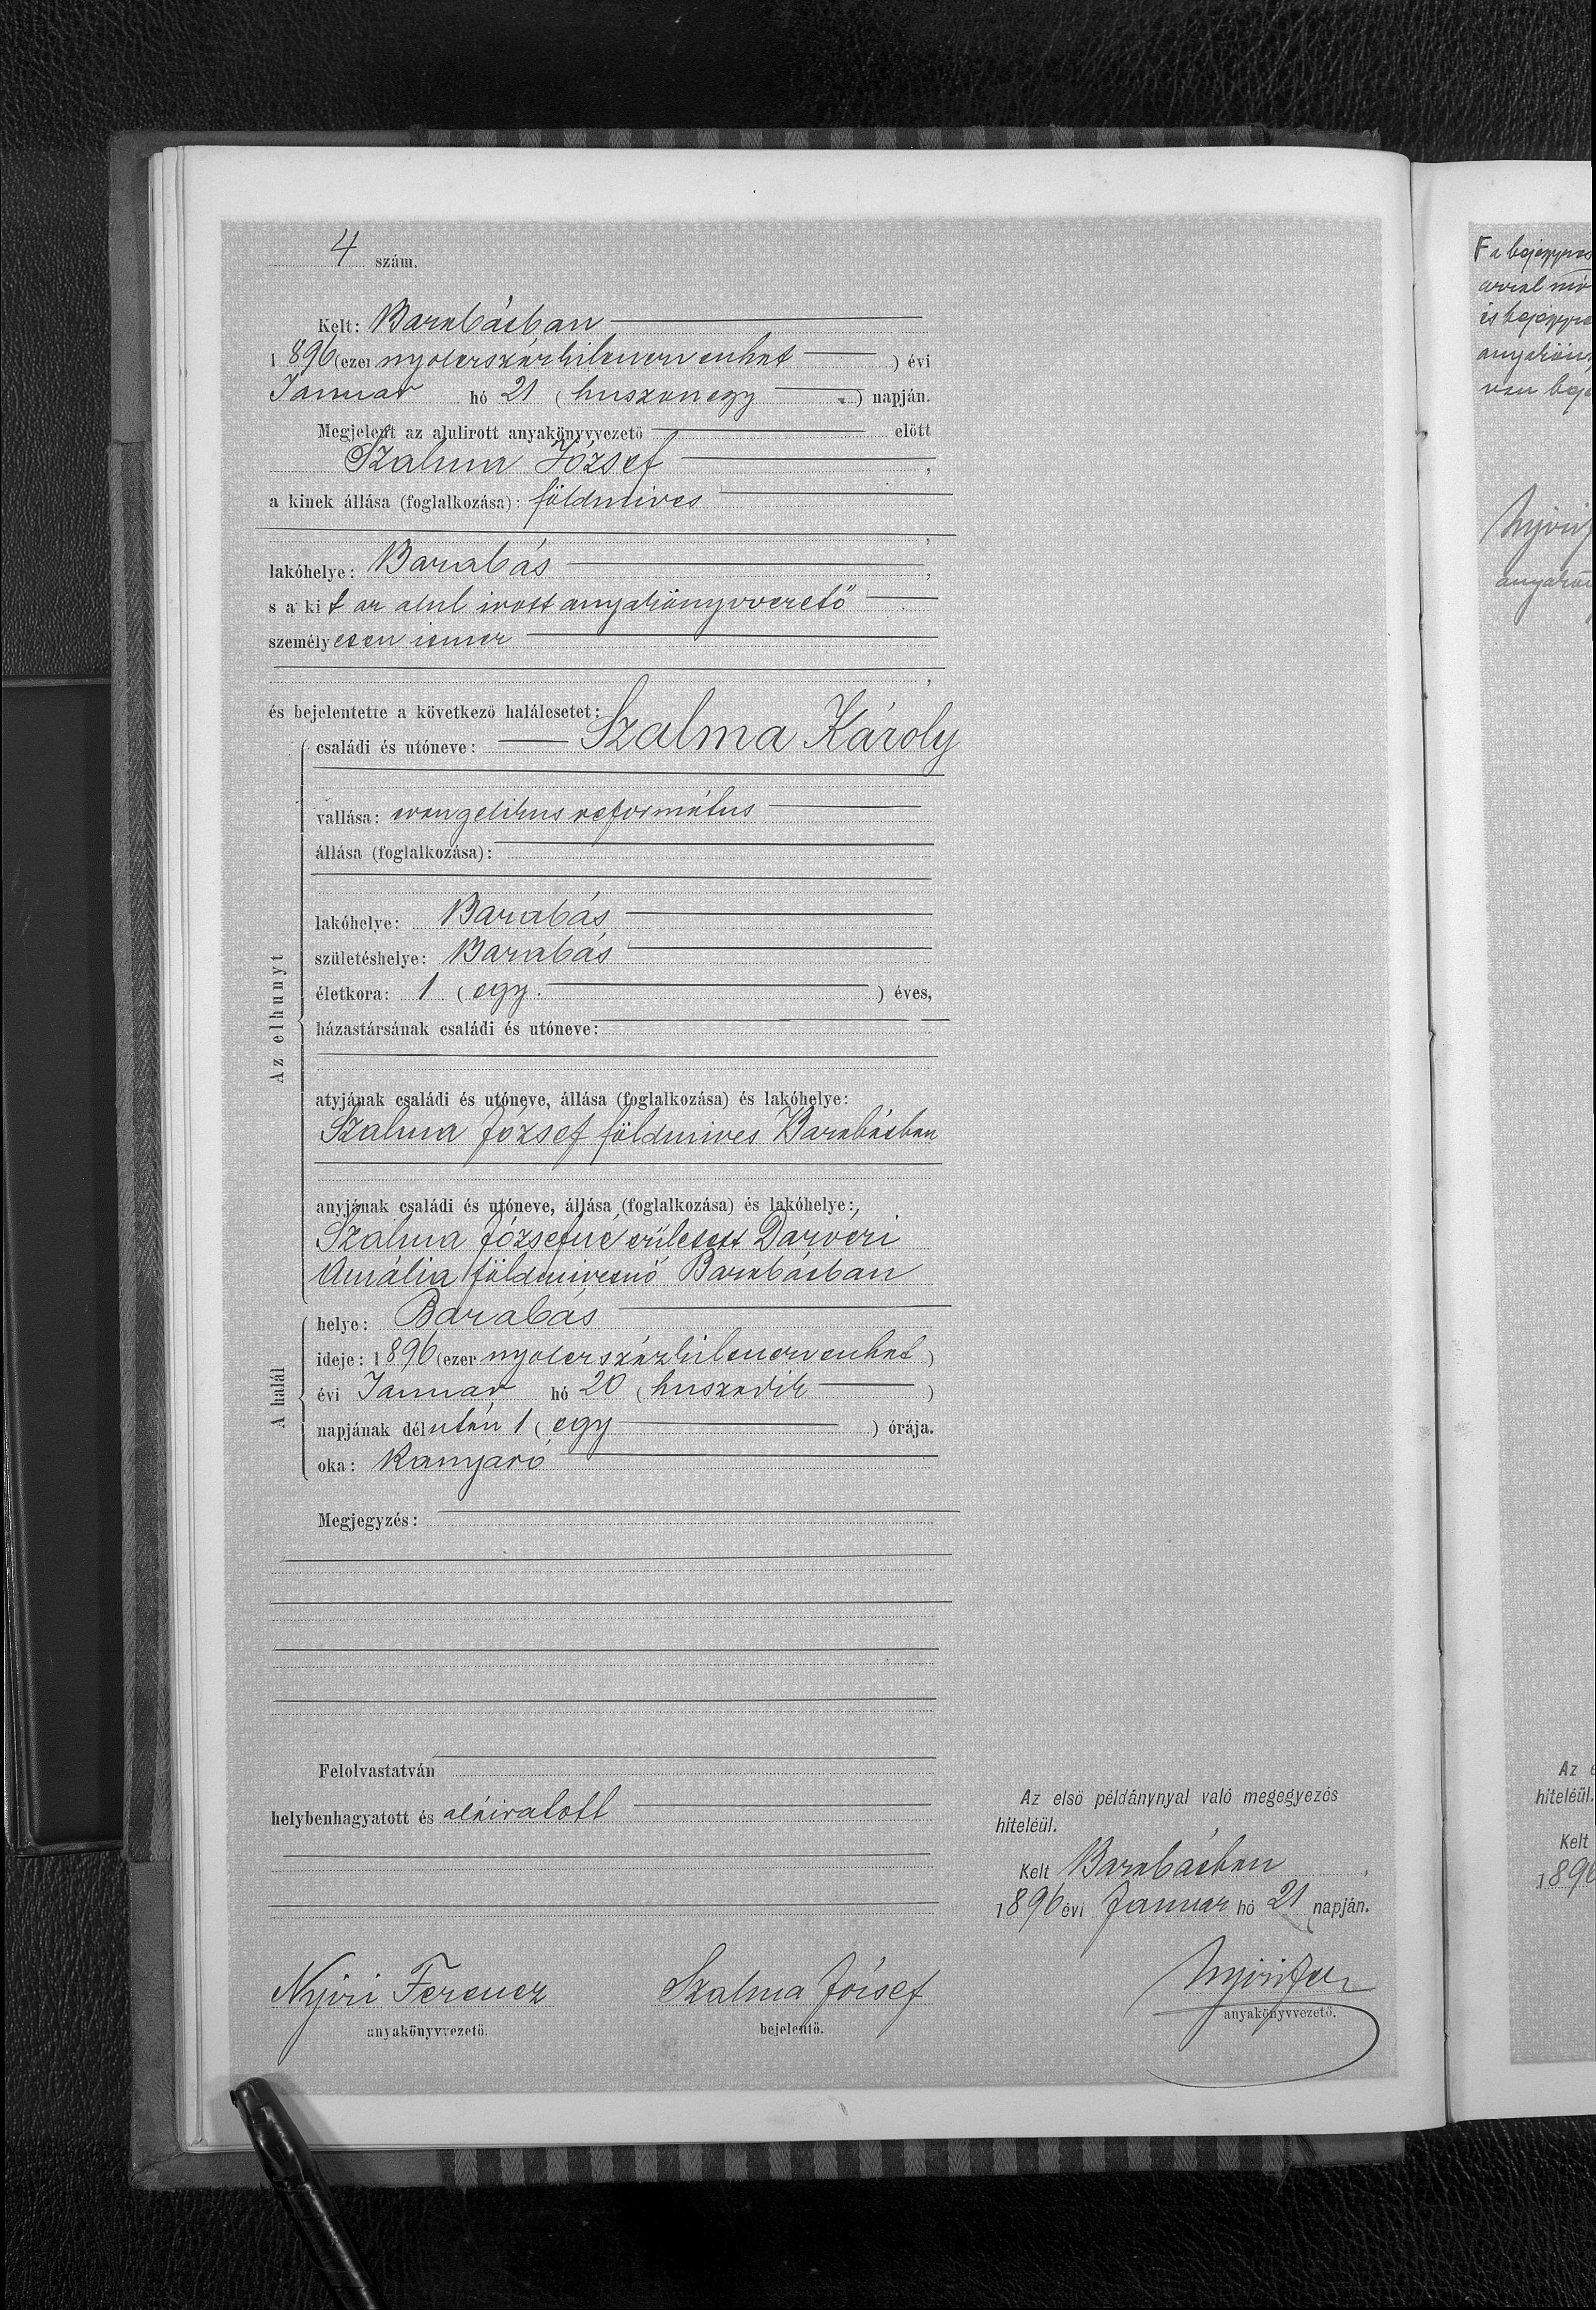 4 szám.
Kelt: Barabásban
1896 (ezer nyolczszázkilenczvenhat) évi
Januar hó 21 (huszonegy) napján.
Megjelent az alulirott anyakönyvvezető előtt
Szalma József,
a kinek állása (foglalkozása): földmives
,
lakóhelye: Barabás,
s a kit az alul irott anyakönyvvezető
személyesen ismer
,
és bejelentette a következő halálesetet:
Az elhunyt
családi és utóneve: Szalma Károly
vallása: evangelikus református
állása (foglalkozása):
lakóhelye: Barabás
születéshelye: Barabás
életkora: 1 (egy.) éves,
házastársának családi és utóneve:
atyjának családi és utóneve, állása (foglalkozása) és lakóhelye:
Szalma József földmives Barabásban
anyjának családi és utóneve, állása (foglalkozása) és lakóhelye:
Szalma Józsefné született Darvéri
Amália földmivesnő Barabásban
A halál
helye: Barabás
ideje: 1896 (ezer nyolczszázkilenczvenhat)
évi Januar hó 20 (huszadik)
napjának délután 1 (egy) órája.
oka: Kanyaró
Megjegyzés:
Felolvastatván
helybenhagyatott és aláiratott
Az első példánynyal való megegyezés
hiteléül.
Kelt Barabásban,
1896 évi Januar hó 21 napján.
Nyiri Ferencz
anyakönyvvezető.
Szalma József
bejelentő.
Nyiri Fer
anyakönyvvezető.
F a bejegyzés
és bejegyzé
van beje
Nyiri
Az e
hiteléül.
Kelt
1896